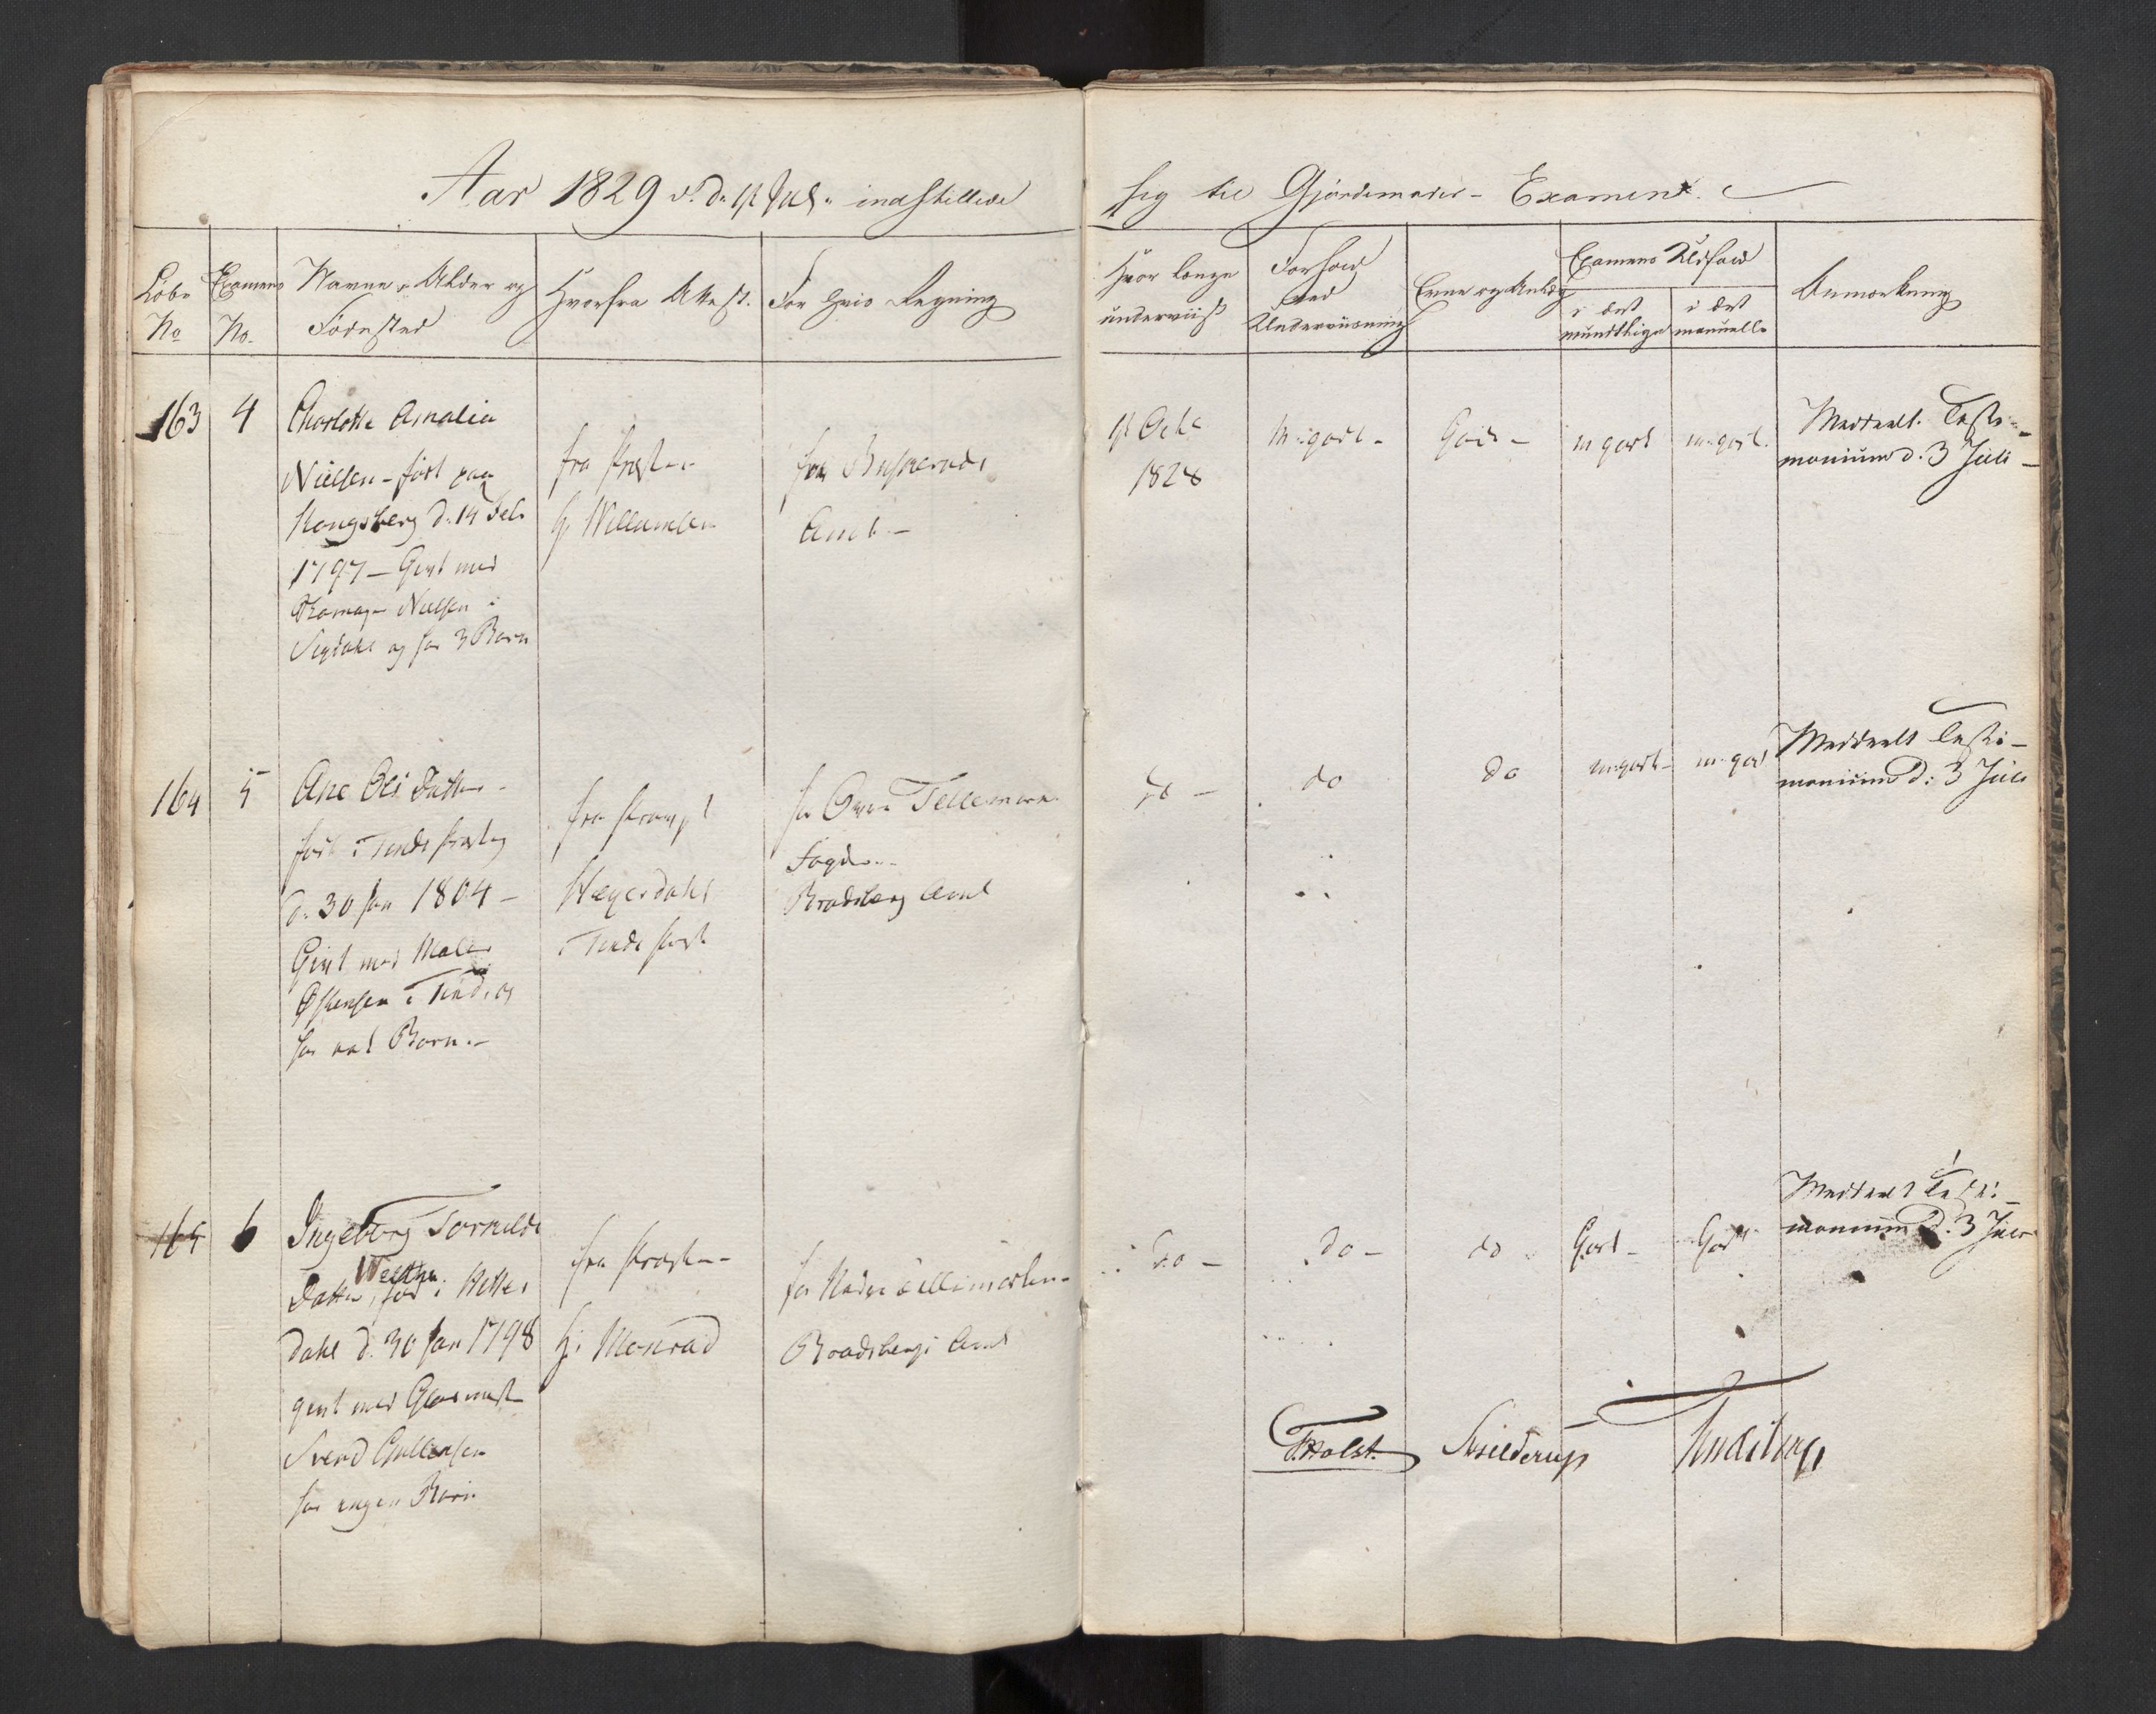 Aar 1829 d. 1st Juli indstillede
sig til Gjordemoder-Examen.
Löbe No
Examens No.
Navne, Alder og Födested
Hvorfra Attest.
For hvis Regning
Hvor længe underviist
Forhold ved Underviisning
Evne og Anlæg
Examens Udfald
i det mundtlige
i det manuelle
Anmærkning
163
4
Charlotte Amalia
Nielsen - föd paa
Kongsberg d. 14 Feb
1797 - Givt med
Nielsen i
Sigdahl og har 3 Børn
fra Præsten
Hr Willumsen
for Buskeruds
Amt -
1st Octb
1828
m. godt -
God -
m godt
m. godt.
Meddeelt Testi-
monium d. 3 Juli -
164
5
Ane Ols Datter -
föd i Tinds Præsteg
d. 30 Jan 1804 -
Givt med
Østensen i Tind, og
har Børn. -
fra Provst
Heyerdahl
i Tinds Præst
for Øvre Tellemarken
Fogd
Bradsberg Amt
do -
do
do
m. godt -
m. god
Meddeelt Testi-
monium d: 3 Juli
165
6
Ingeborg Torkilds
Datter, föd i Hitter
dahl d. 30 Jan 1798
givt med
Svend
har ingen Børn
fra Præsten -
Hr Monrad
for Nedre Tellemarken -
Bradsbergs Amt
do -
do -
do
Godt -
Godt
Meddeelt Testi-
monium d. 3 Juli
F. Holst. Skielderup